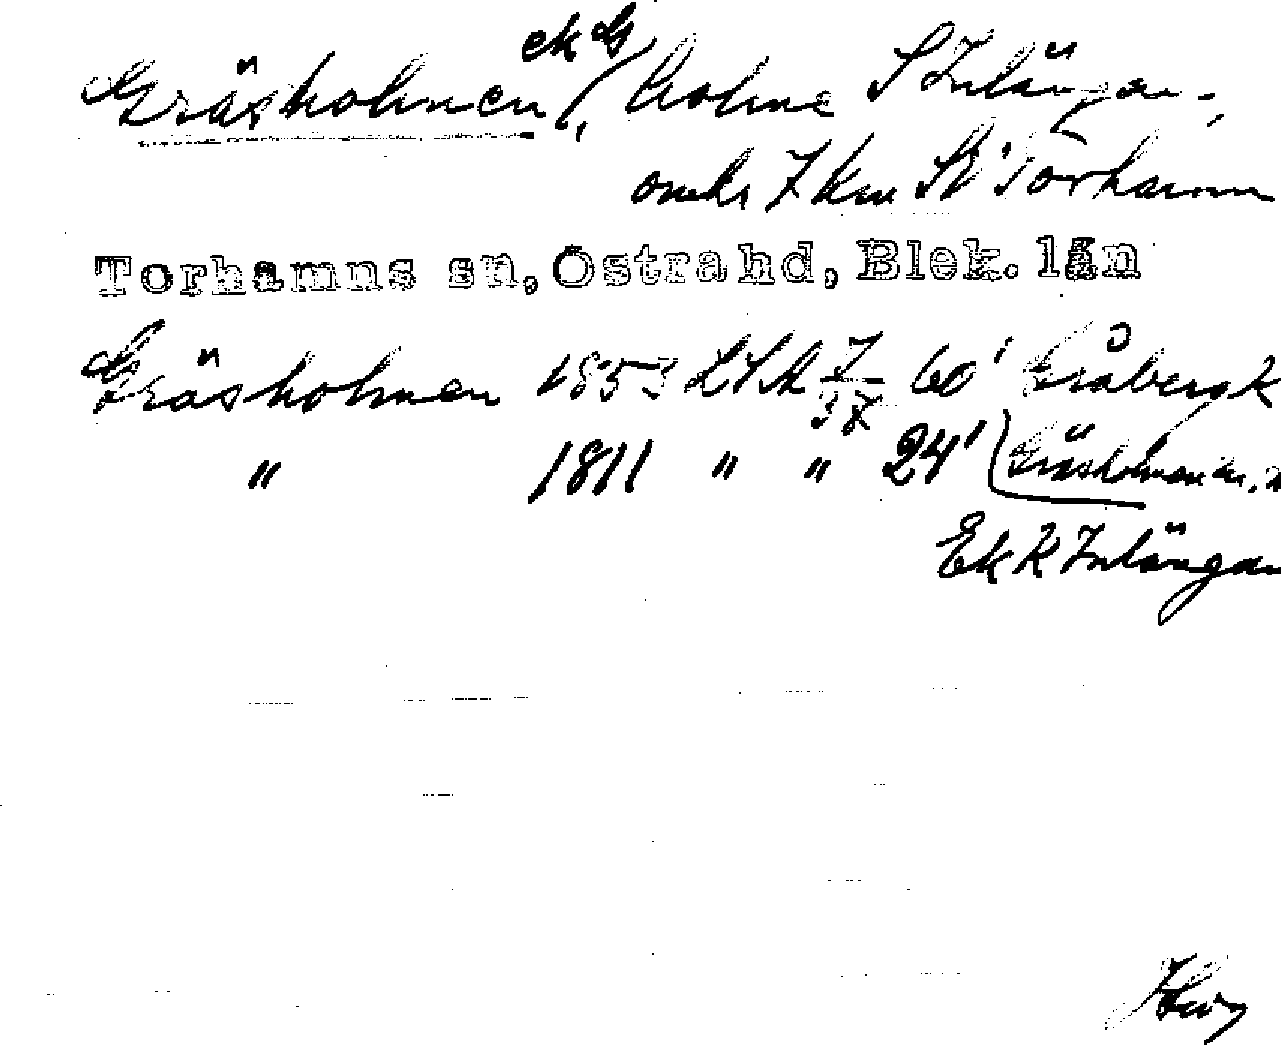 ek G
Gräsholmen, holme S Inlängan,
omkr 7 km SV Torhamn
Torhamns sn, Östra hd, Blek. län
Gräsholmen 1853 LSA 60' Gråbergk
" 1811 " " 24' (Gräsholmen
Ek K Inlängan